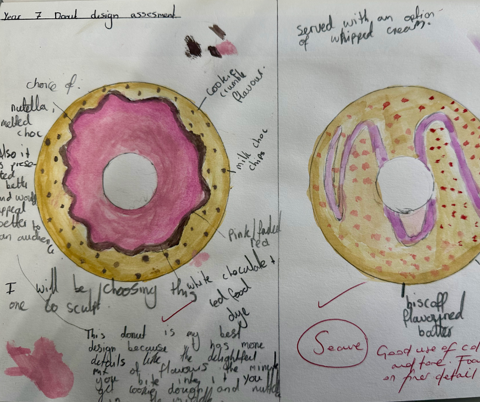 Year 7 Donut design assesment
served with an option
of whipped cream.
choice of.
nutella,
melted
choc
cookie
crumble
flavour.
Also it
is prese-
ted
bette
and would
appeal
better to
an audience
milk choc
chips
Pink/faded
red
white chocolate +
red food
dye
I will be choosing this
one to sculpt.
This donut is my best
design because it has more
details like the delightful
mix of flavours the minute
you bite into it you
get cookie dough and nutella
in the middle
biscoff
flavoured
batter
Secure
Good use of col
and tone. Foc
on finer detail